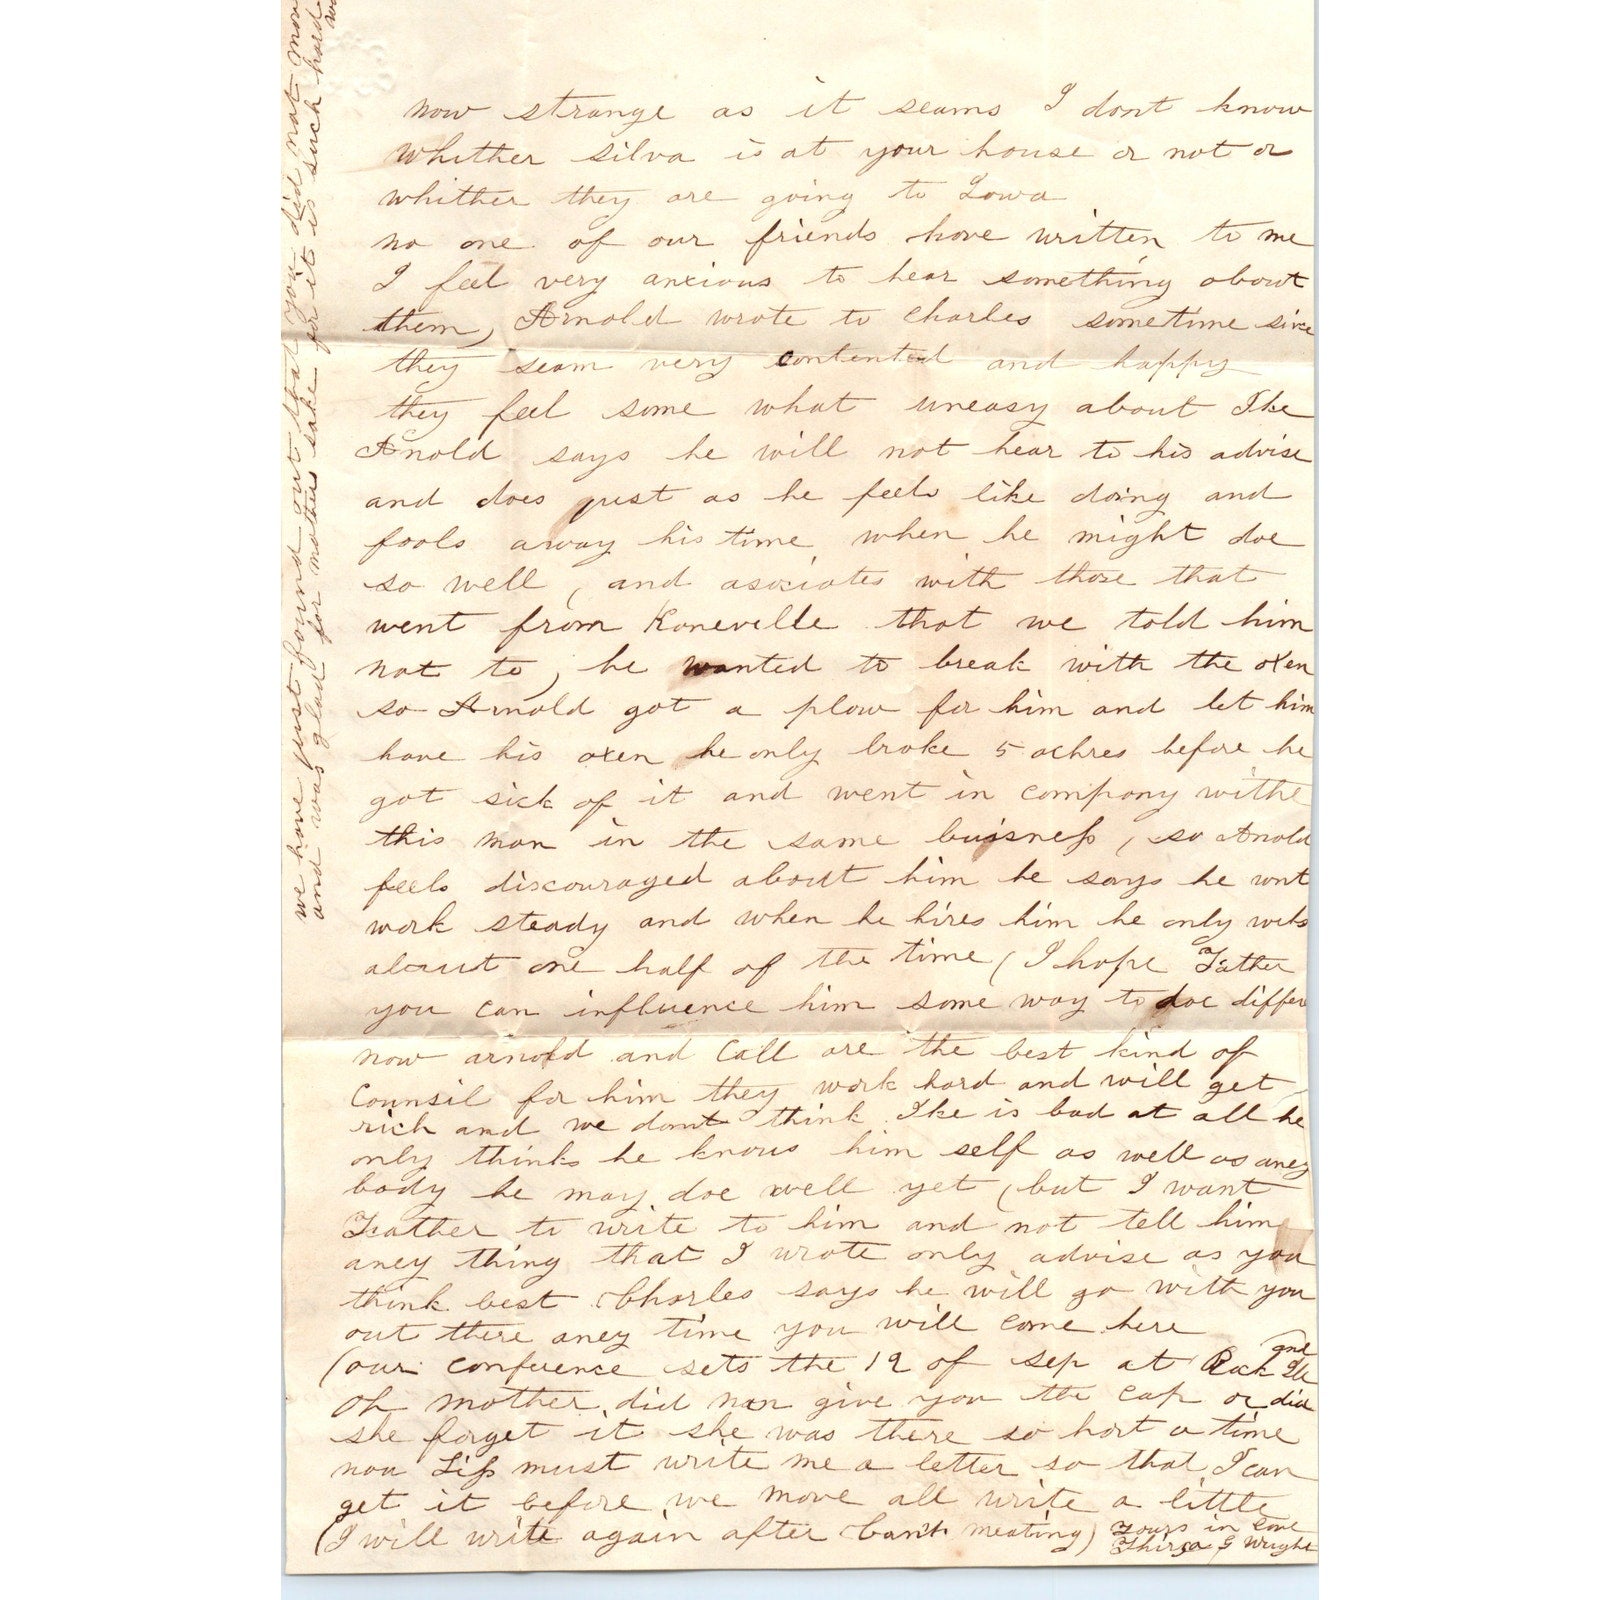 now strange as it seams I dont know
whither silva is at your house or not or
whither they are going to Iowa
no one of our friends have written to me
I feel very anxious to hear something about
them, Arnold wrote to Charles sometime since
they seam very contented and happy
they feel some what uneasy about Ike
Arnold says he will not hear to his advise
and does just as he feels like doing and
fools away his time when he might doe
so well, and asociates with those that
went from Raneville that we told him
not to, he wanted to break with the oxen
so Arnold got a plow for him and let him
have his oxen he only broke 5 achres before he
got sick of it and went in company withe
this man in the same buisness, so Arnold
feels discouraged about him he says he wont
work steady and when he hires him he only works
about one half of the time (I hope Father
you can influence him some way to doe differ
now arnold and Call are the best kind of
Counsil for him they work hard and will get
rich and we dont think Ike is bad at all he
only thinks he knows him self as well as aney
body he may doe well yet (but I want
Father to write to him and not tell him
aney thing that I wrote only advise as you
think best Charles says he will go with you
out there aney time you will come here
(our confuence sets the 19 of sep at Rock
Oh mother did nan give you the cap or did
she forget it she was there so hort a time
nou Liss must write me a letter so that I can
get it before we move all write a little
(I will write again after Camt meating) Yours in Love
Thirza G Wright
we have just found out that you did not mov
and was glad for mothers sake for it is such hard